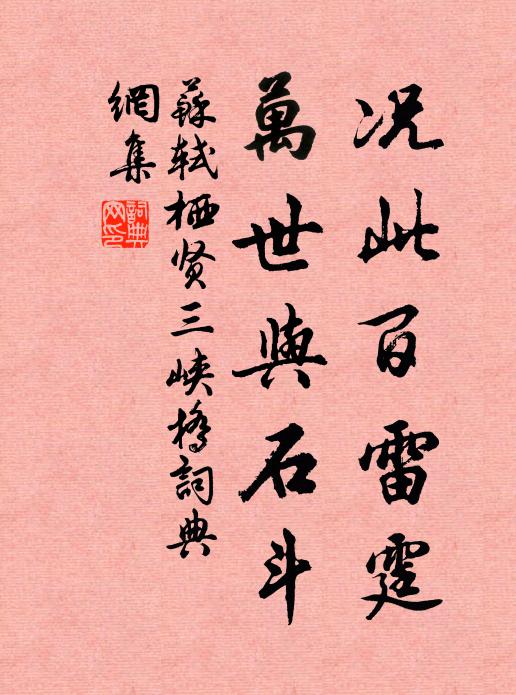 况此百雷霆
萬世與石斗
蘇軾栖贤三峡橋詞典
網集
詞典網印